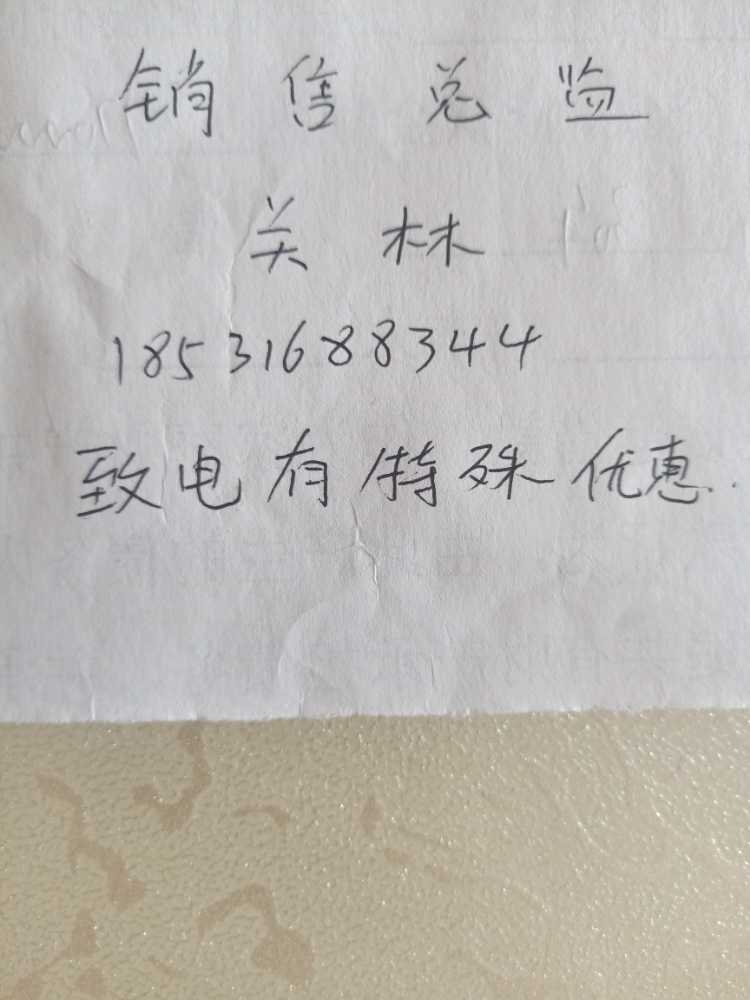 销售总监
关林
18531688344
致电有特殊优惠.